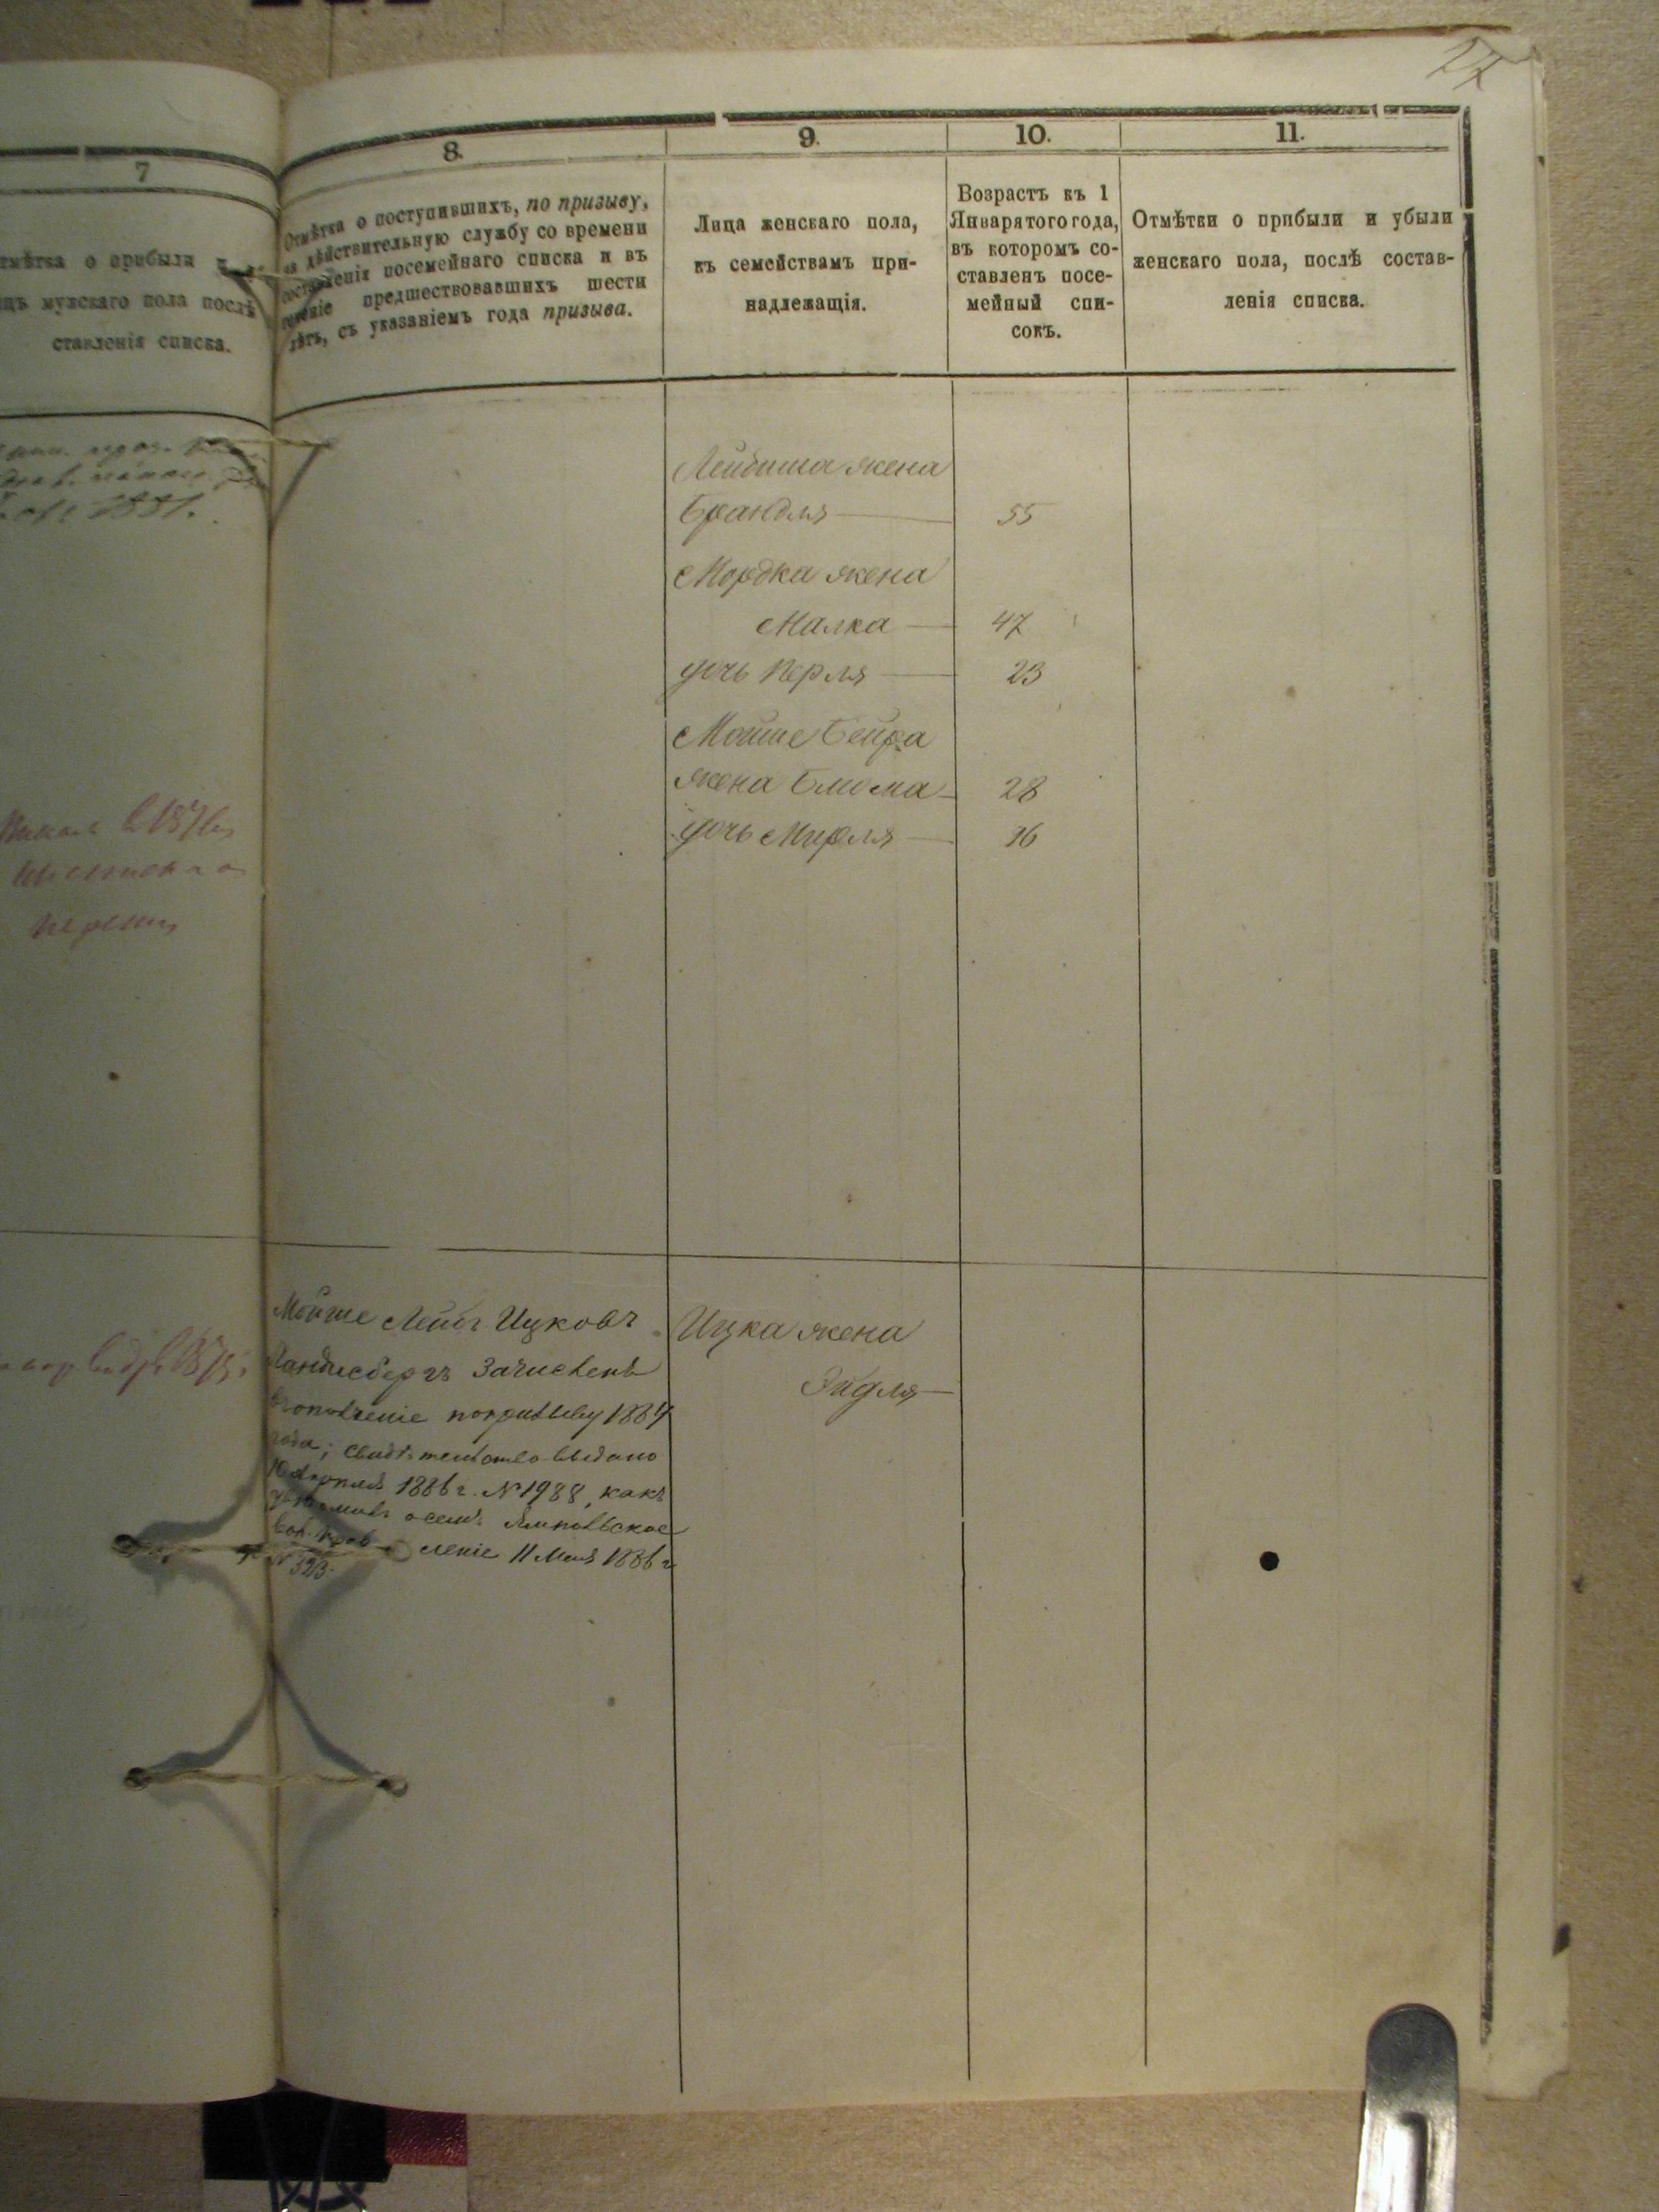 27
7
8.
9.
10.
11.
отмѣтка о прибыли и
лицъ мужскаго пола послѣ
ставленія списка.
Отмѣтка о поступившихъ, по призыву,
на дѣйствительную службу со времени
составленія посемейнаго списка и въ
теченіе предшествовавшихъ шести
лѣтъ, съ указаніемъ года призыва.
Лица женскаго пола,
къ семействамъ при-
надлежащія.
Возрастъ къ 1
Января того года,
въ которомъ со-
ставленъ посе-
мейный спи-
сокъ.
Отмѣтки о прибыли и убыли
женскаго пола, послѣ состав-
ленія списка.
1881.
Лейбиша жена
Брандля 55
Мордка жена
Малка 47
дочь Перля 23
Мойше Бейра
жена Блюма 28
дочь Мирля 16
Мойше Лейбъ Ицковъ
Ландисбергъ Зачисленъ
въ ополченіе по призыву 1884
года; свидѣтельство выдано
Апрѣля 1886 г. № 1988, какъ
Ямпольское
вол. прав леніе 11 Мая 1886 г
Ицка жена
Эйдля